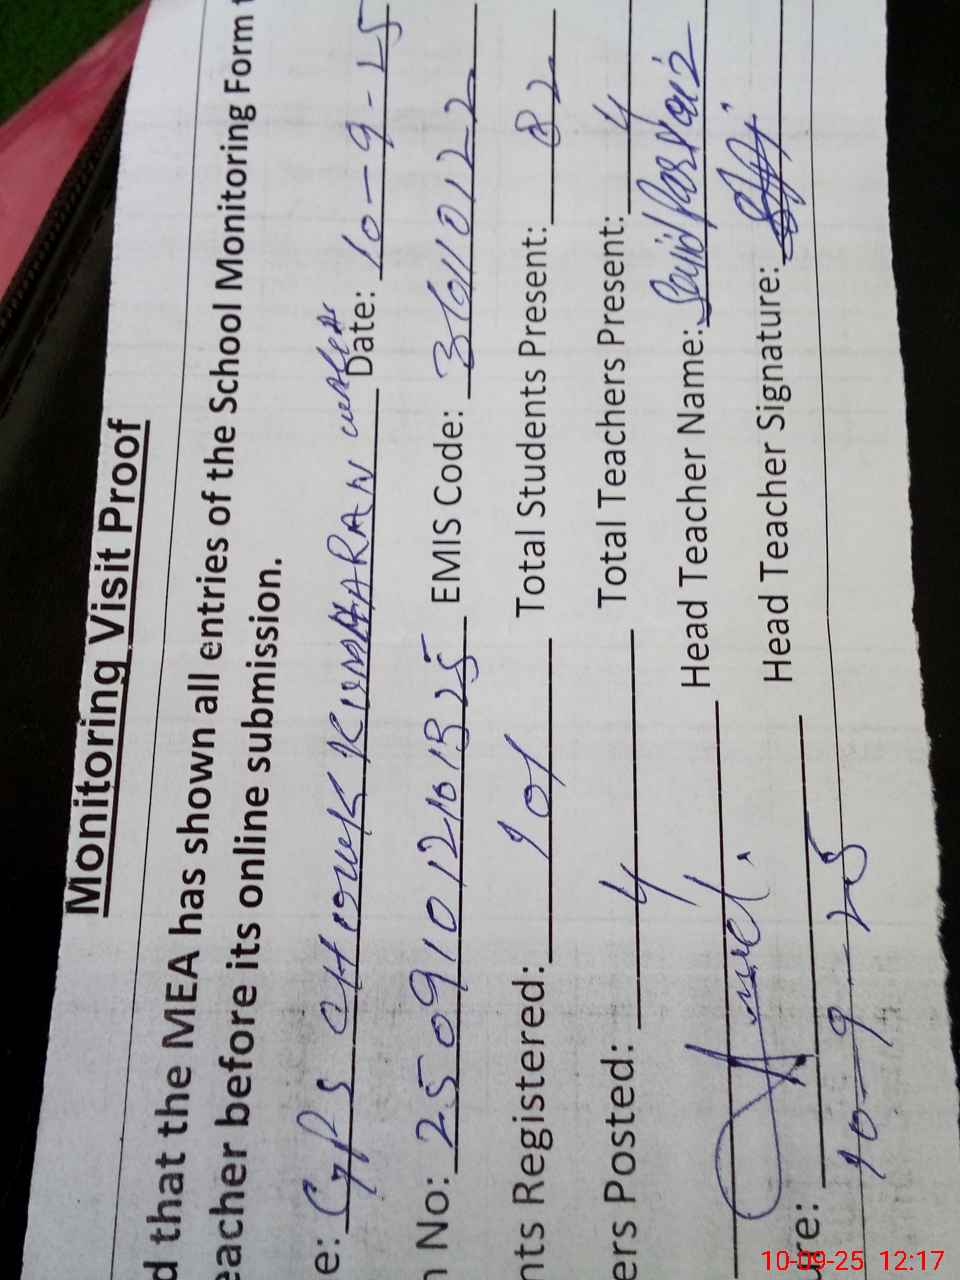 Monitoring Visit Proof
d that the MEA has shown all entries of the School Monitoring Form
eacher before its online submission.
e: GPS CHOWK KUMHARAN Date: 10-9-25
No: 25091012101325 EMIS Code:
nts Registered: 101 Total Students Present: 82
ers Posted: 4 Total Teachers Present: 4
Head Teacher Name:
Head Teacher Signature:
ure: 10-9-25
10-09-25 12:17